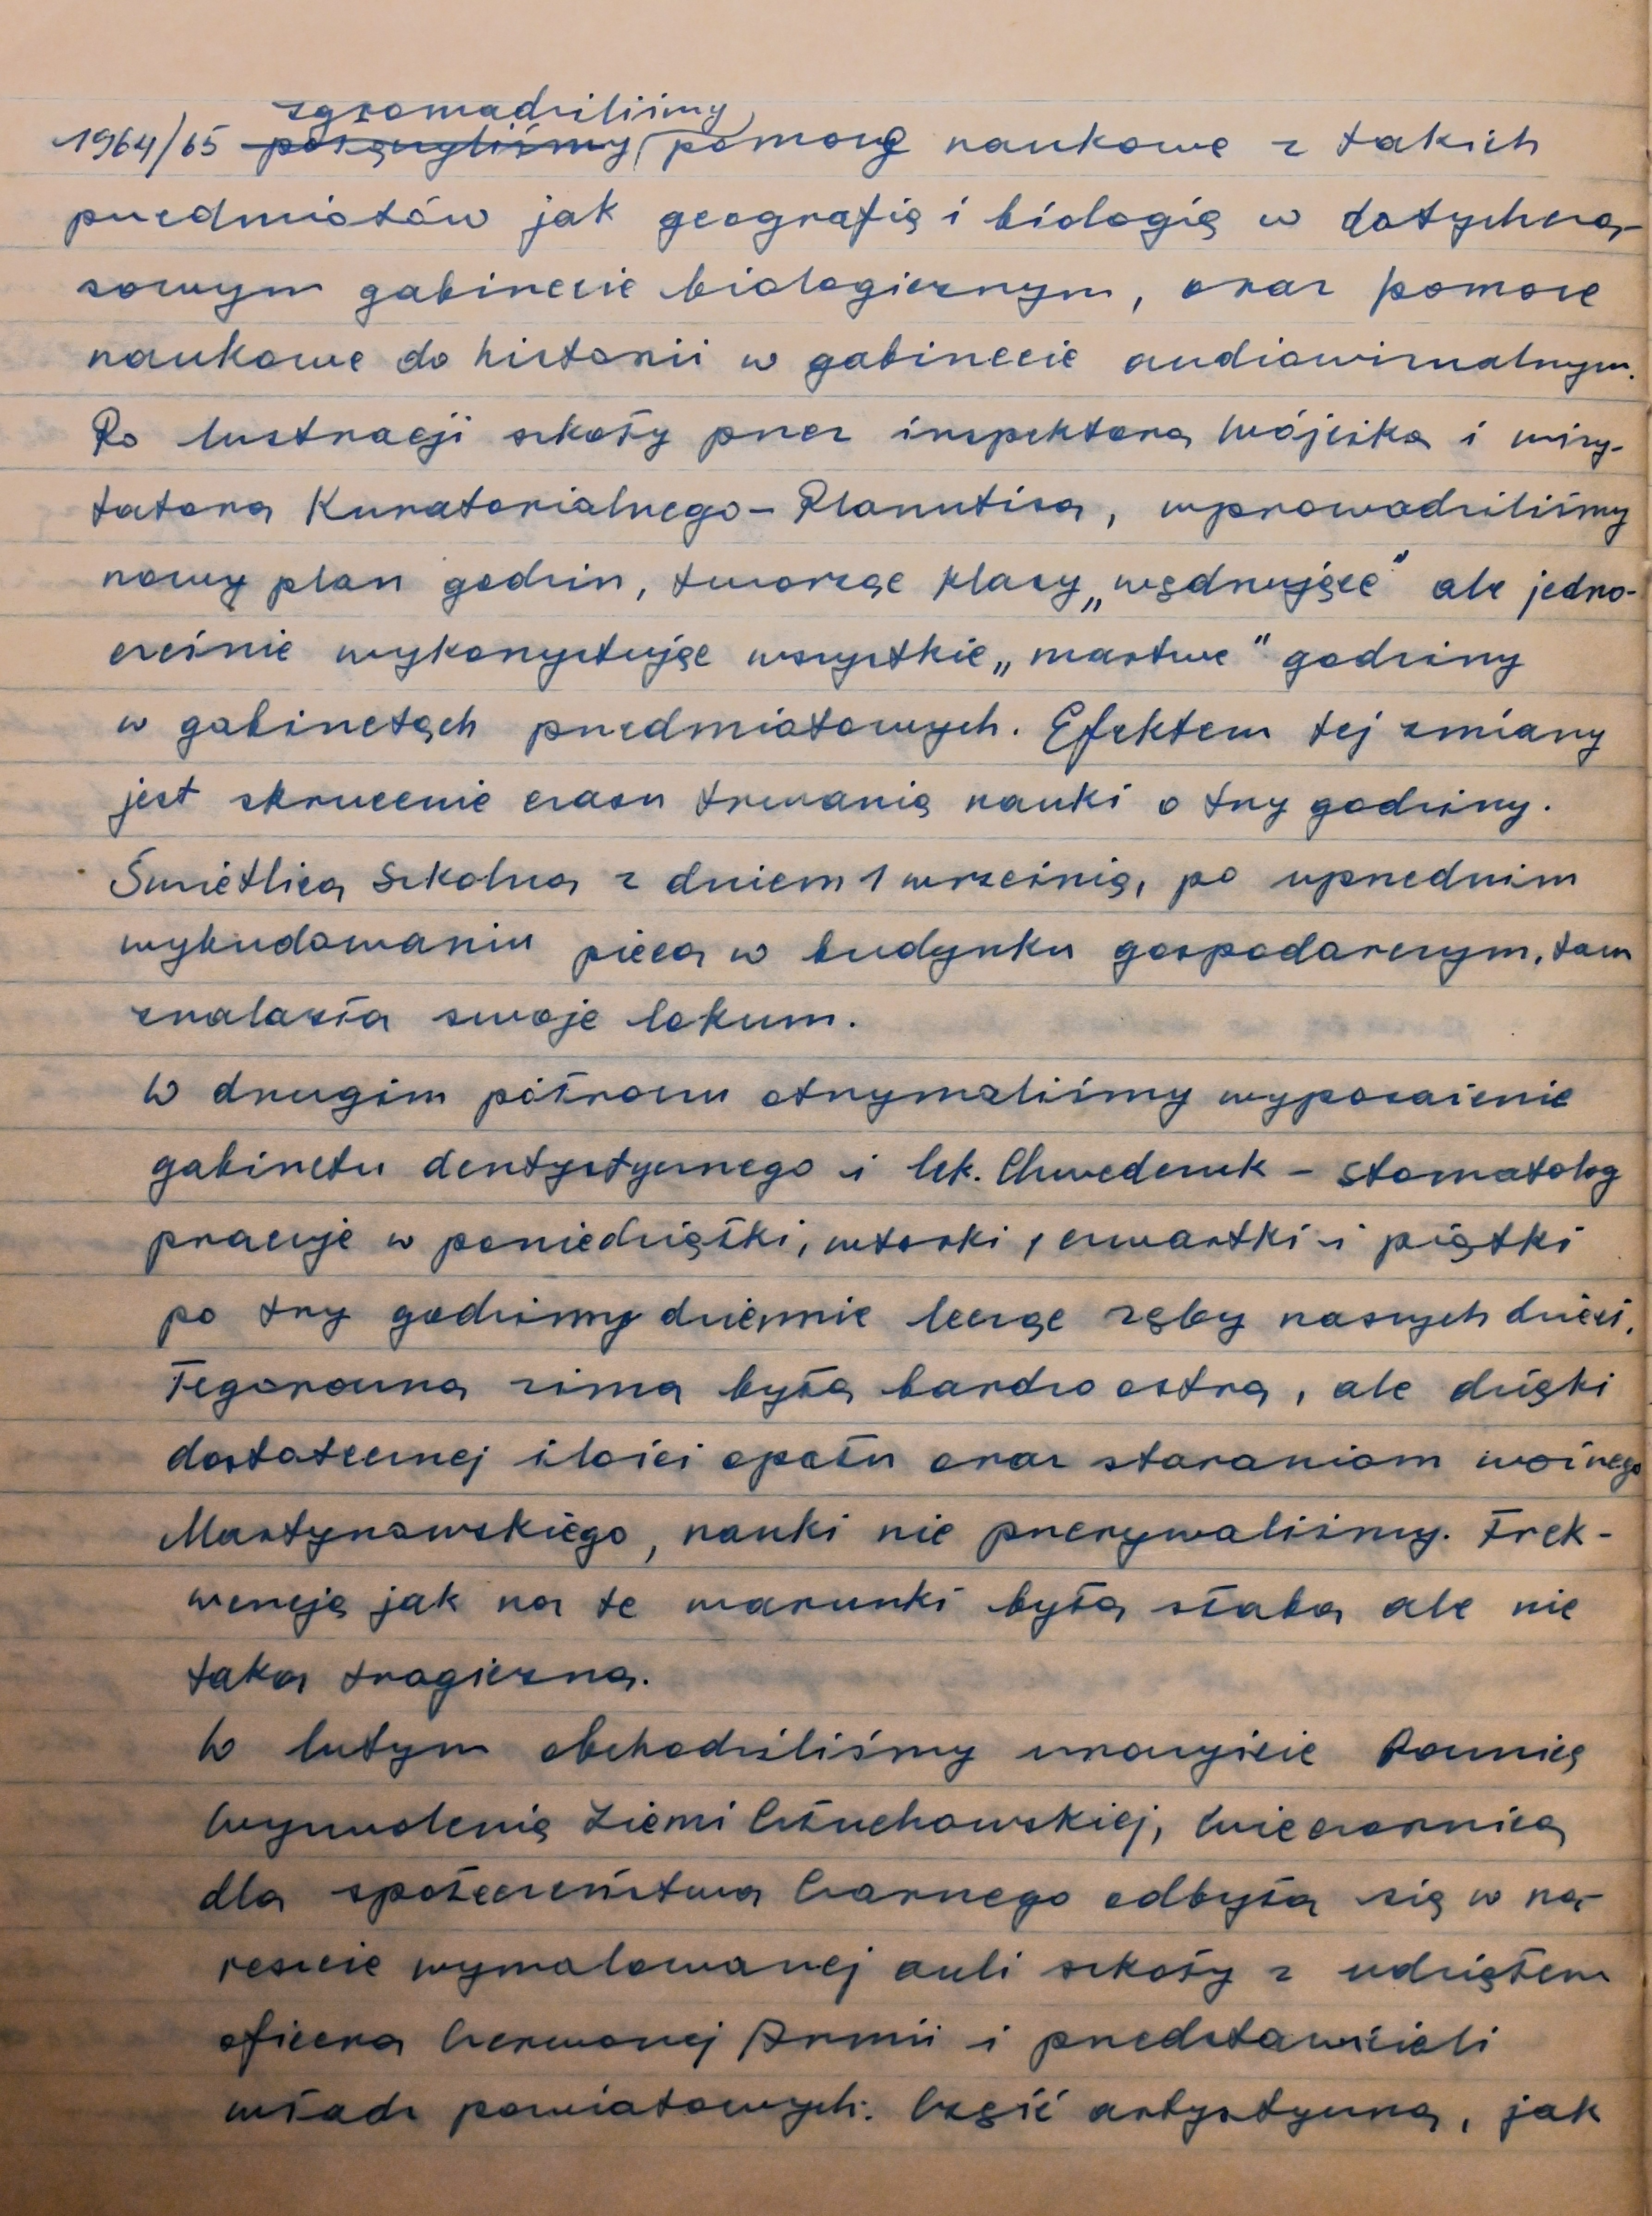 zgromadziliśmy
1964/65 połączyliśmy pomoce naukowe z takich
przedmiotów jak geografia i biologia w dotychcza-
sowym gabinecie biologicznym, oraz pomoce
naukowe do historii w gabinecie audiowizualnym.
Po lustracji szkoły przez inspektora Wójcika i wizy-
tatora Kuratorialnego – Planutisa, wprowadziliśmy
nowy plan godzin, tworząc klasy „wędrujące" ale jedno-
cześnie wykorzystując wszystkie „martwe" godziny
w gabinetach przedmiotowych. Efektem tej zmiany
jest skrucenie czasu trwania nauki o trzy godziny.
Świetlica szkolna z dniem 1 września, po uprzednim
wybudowaniu pieca w budynku gospodarczym, tam
znalazła swoje lokum.
W drugim półroczu otrzymaliśmy wyposażenie
gabinetu dentystycznego i lek. Chwedczuk – stomatolog
pracuje w poniedziałki, wtorki, czwartki i piątki
po trzy godziny dziennie lecząc zęby naszych dzieci.
Tegoroczna zima była bardzo ostra, ale dzięki
dostatecznej ilości opału oraz staraniom woźnego
Martynowskiego, nauki nie przerywaliśmy. Frek-
wencja jak na te warunki była słaba ale nie
taka tragiczna.
W lutym obchodziliśmy uroczyście Rocznicę
Wyzwolenia Ziemi Człuchowskiej, Wieczornica
dla społeczeństwa Czarnego odbyła się w na-
reszcie wymalowanej auli szkoły z udziałem
oficera Czerwonej Armii i przedstawicieli
władz powiatowych. Część artystyczna, jak